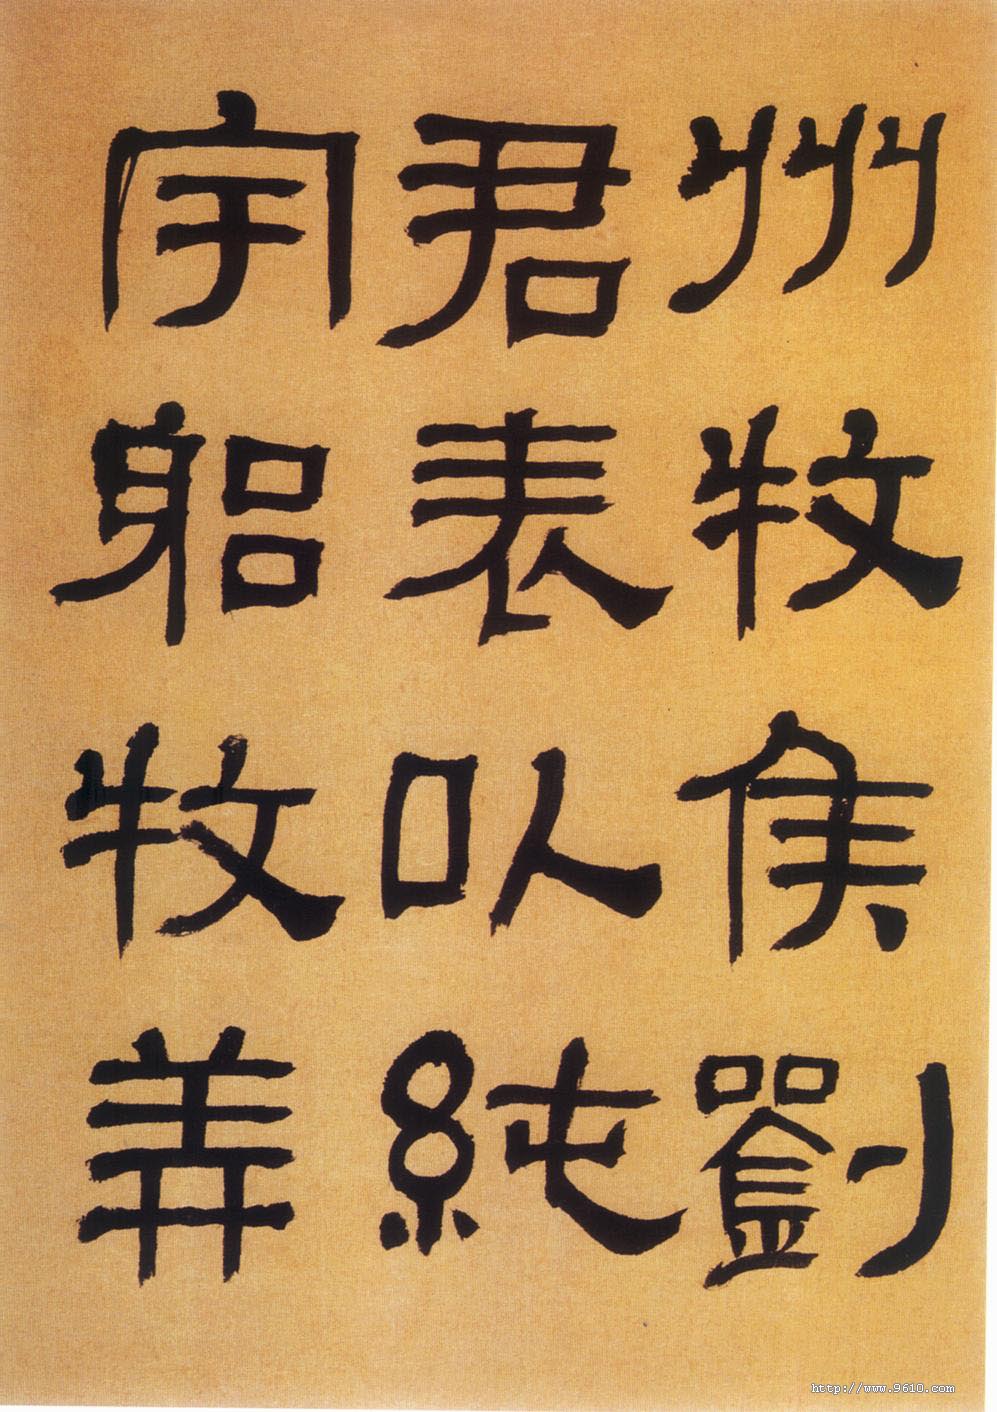 州牧侯劉
君表以純
宇躳牧
http://www.9610.com